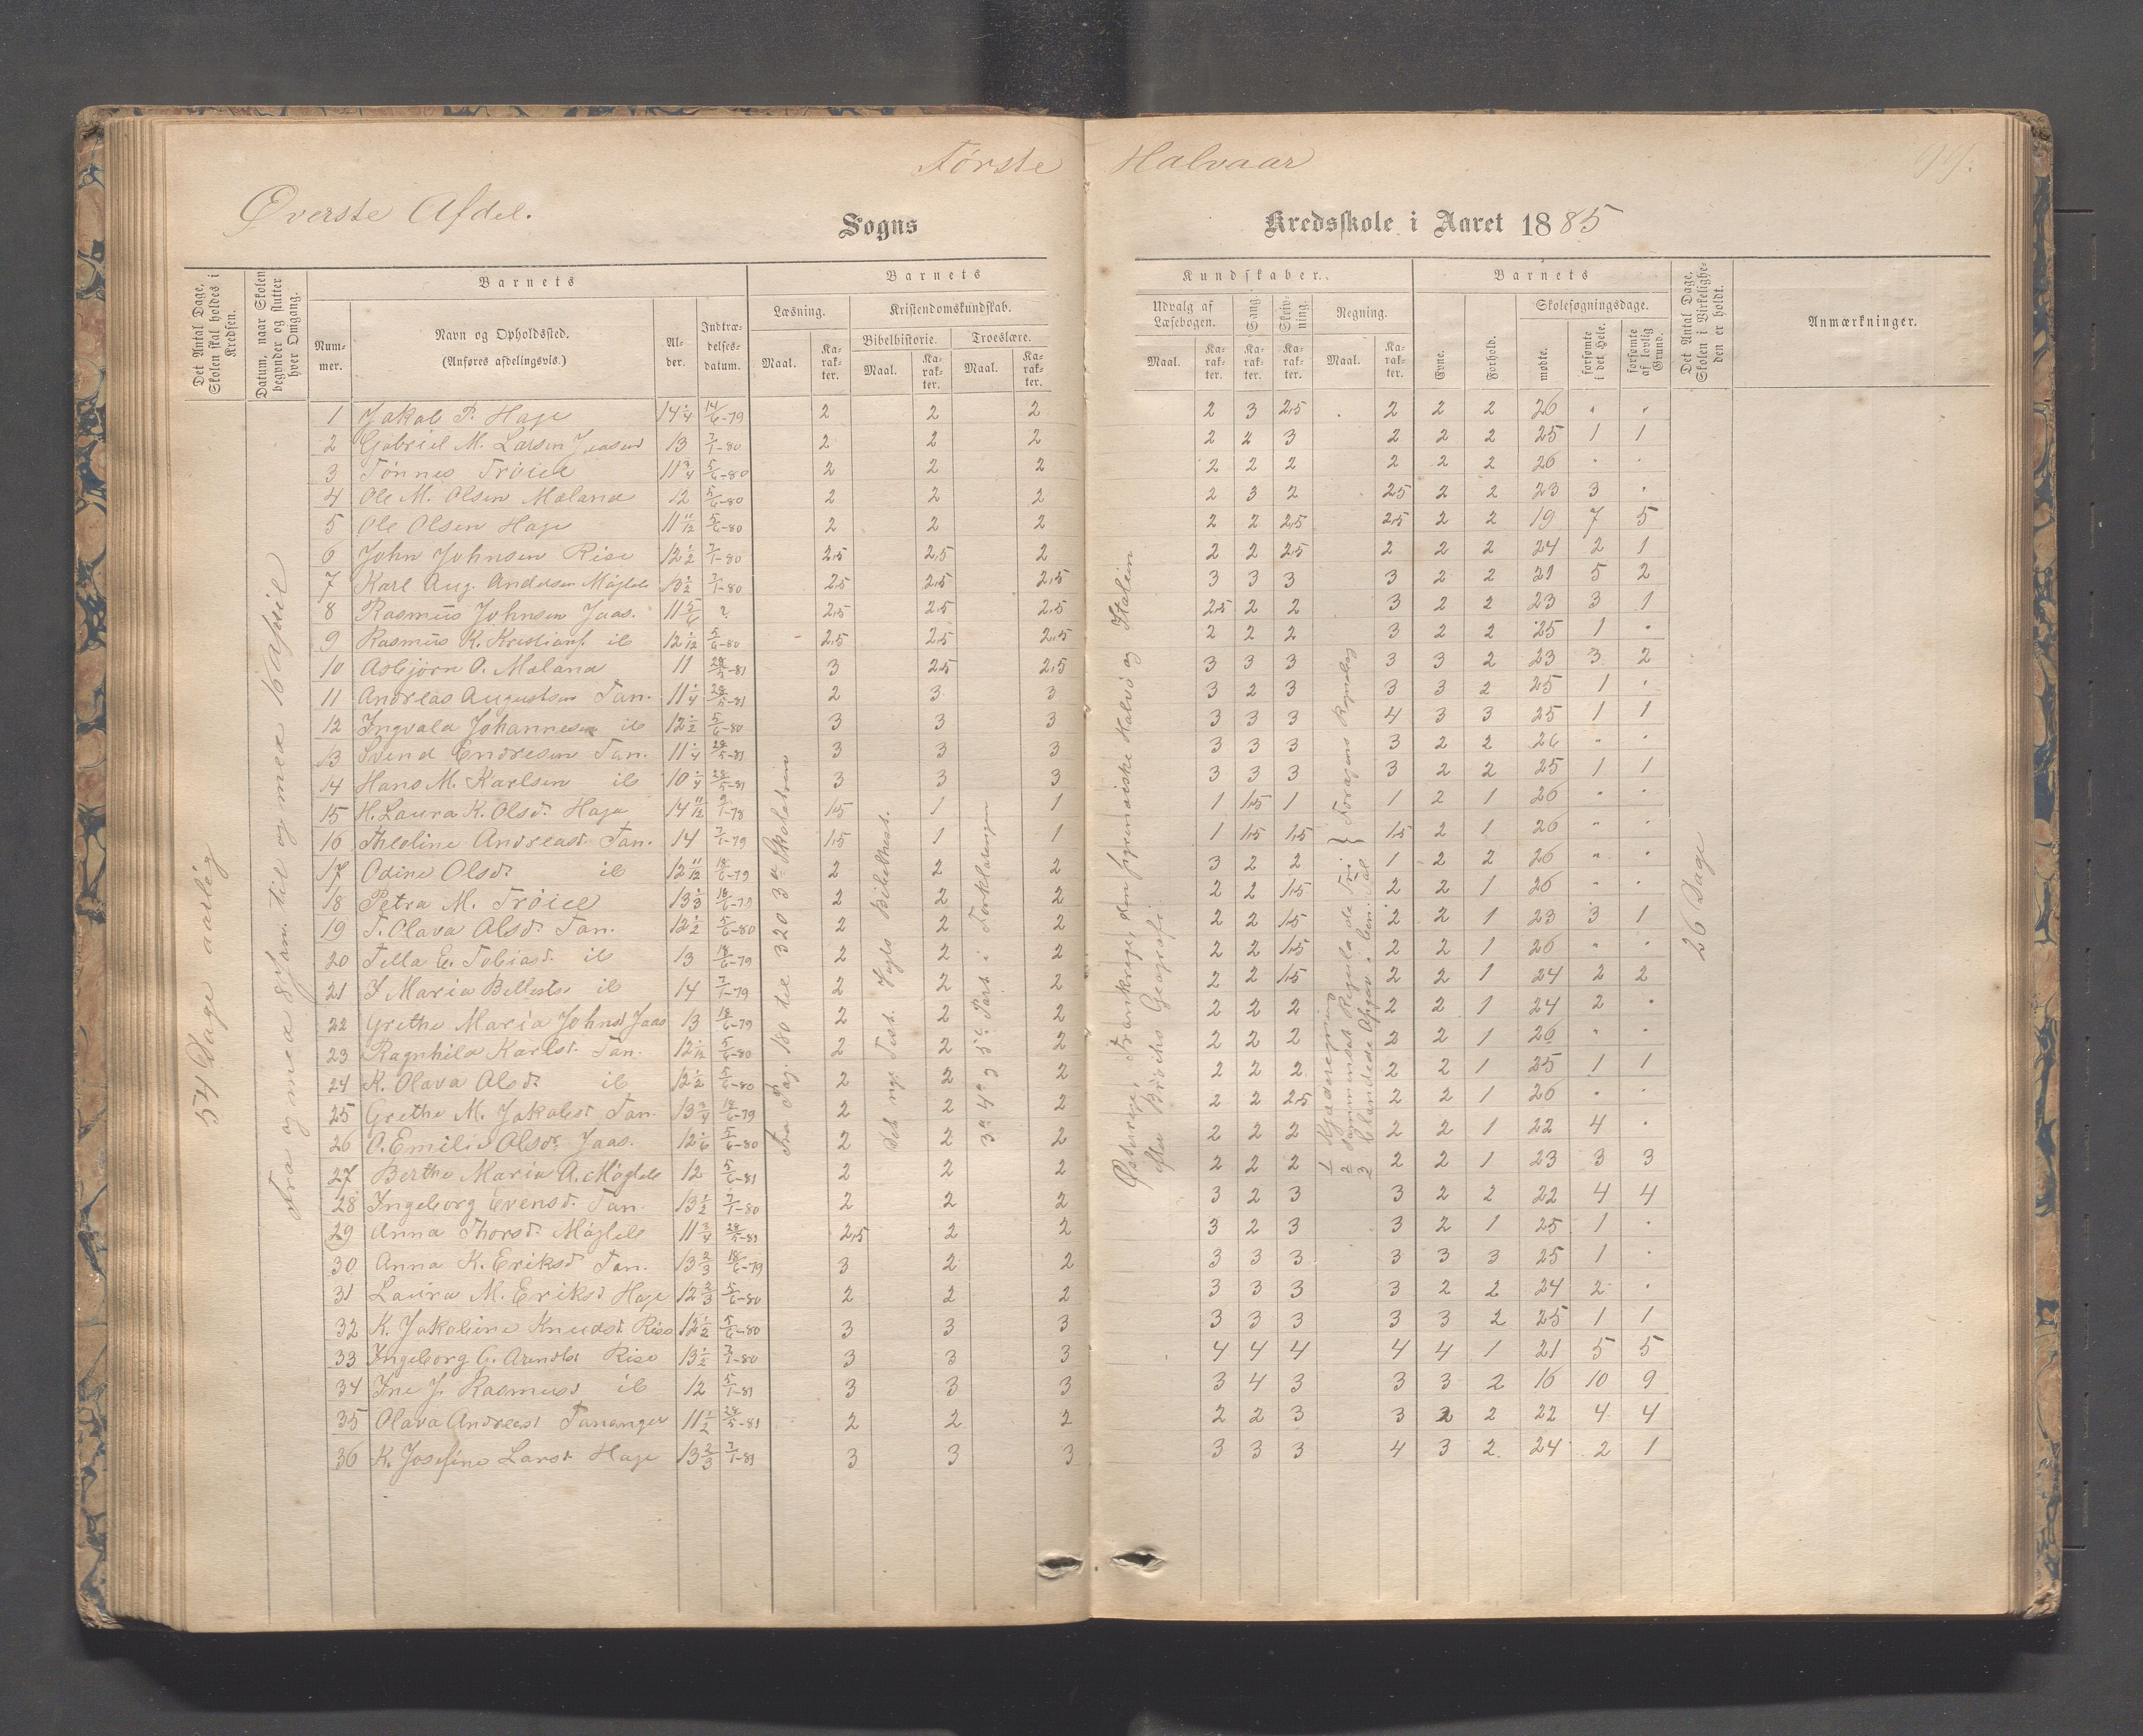 Første Halvaar
Øverste Afdel.
Sogns Kredsskole i Aaret 1885
Det Antal Dage, Skolen skal holdes i Kredsen.
Datum, naar Skolen begynder og slutter hver Omgang.
Barnets
Nummer.
Navn og Opholdssted. (Anføres afdelingsvis.)
Alder.
Indtrædelsesdatum.
Barnets Kundskaber.
Læsning.
Maal.
Karakter.
Kristendomskundskab.
Bibelhistorie.
Maal.
Karakter.
Troeslære.
Maal.
Karakter.
Udvalg af Læsebogen.
Maal.
Karakter.
Sang.
Karakter.
Skrivning.
Karakter.
Regning.
Maal.
Karakter.
Barnets
Evne.
Forhold.
Skolesøgningsdage.
mødte.
forsømte i det Hele.
forsømte af lovlig Grund.
Det Antal Dage, Skolen i Virkeligheden er holdt.
Anmærkninger.
54 Dage aarlig
Fra og med 8 Jan. til og med 16 April
Fra Pag. 180 til 320 3die Skoletrin
Vogts Bibelhist.
3die 4de og 5te Part i Forklaringen
Østerrige, Frankrige, den pyrenæiske Halvø og Italien
efter Geografi
26 Dage
1 Jakob P. Hage 14 1/4 14/6-79 2 2 2 2 3 2,5 2 2 2 26 " "
2 Gabriel M. Larsen Jaasund 13 7/1-80 2 2 2 2 2 3 2 2 2 25 1 1
3 Tønnes Trøiel 11 3/4 5/6-80 2 2 2 2 2 2 2 2 2 26 " "
4 Ole M. Olsen Mæland 12 5/6-80 2 2 2 2 3 2 2,5 2 2 23 3 "
5 Ole Olsen Hage 11 11/12 5/6-80 2 2 2 2 2 2,5 2,5 2 2 19 7 5
6 John Johnsen Rise 12 1/2 7/1-80 2,5 2,5 2 2 2 2,5 2 2 2 24 2 1
7 Karl Aug. Andersen 13 1/2 7/1-80 2,5 2,5 2,5 3 3 3 3 2 2 21 5 2
8 Rasmus Johnsen Jaas. 11 5/6 ? 2,5 2,5 2,5 2,5 2 2 3 2 2 23 3 1
9 Rasmus K. Kristians. ib 12 1/12 5/6-80 2,5 2,5 2,5 2 2 2 3 2 2 25 1 "
10 Asbjørn O. Mæland 11 28/5-81 3 2,5 2,5 3 3 3 3 3 2 23 3 2
11 Andreas Augustsen Tan. 11 1/4 28/5-81 2 3 3 3 2 3 3 3 2 25 1 "
12 Ingvald Johannesen ib 12 1/2 5/6-80 3 3 3 3 3 3 4 3 3 25 1 1
13 Svend Endresen Tan. 11 1/4 28/5-81 3 3 3 3 3 3 3 2 2 26 " "
14 Hans M. Karlsen ib 10 1/4 28/5-81 3 3 3 3 3 3 3 2 2 25 1 1
15 H. Laura K. Olsd. Haga 14 11/12 1 1,5 1 1 1 1,5 1 1 2 1 26 " "
16 Theoline Andreasd. Tan. 14 7/1-79 1,5 1 1 1 1,5 1,5 1,5 2 1 26 " "
17 Odine Olsd. ib 12 11/12 18/6-79 2 2 2 3 2 2 1 2 2 26 " "
18 Petra M. Trøiel 13 1/3 18/6-79 2 2 2 2 2 1,5 2 2 1 26 " "
19 T. Olava Olsd. Tan. 12 1/2 5/6-80 2 2 2 2 2 1,5 2 2 1 23 3 1
20 Tella E. Tobiasd. ib 13 18/6-79 2 2 2 2 2 1,5 2 2 1 26 " "
21 Maria ib 14 7/1-79 2 2 2 2 2 1,5 2 2 1 24 2 2
22 Grethe Maria Johnsd. Jaas 13 18/6-79 2 2 2 2 2 2 2 2 1 24 2 "
23 Ragnhild Karlsd. Tan. 12 1/12 5/6-80 2 2 2 2 2 2 2 2 1 26 " "
24 K. Olava Olsd. ib 12 1/2 5/6-80 2 2 2 2 2 2 2 2 1 25 1 1
25 Grethe M. Jakobsd. Tan. 13 3/4 18/6-79 2 2 2 2 2 2,5 2 2 1 26 " "
26 O. Emilie Olsd. Jaas. 12 1/6 5/6-80 2 2 2 2 2 2 2 2 1 22 4 "
27 Berthe Maria A. 12 5/6-81 2 2 2 2 2 2 2 2 1 23 3 3
28 Ingeborg Evensd. Tan. 13 1/2 7/1-80 2 2 2 3 2 3 3 2 2 22 4 4
29 Anna Thorsd. 11 3/4 28/5-81 2,5 2 2 3 2 3 3 2 1 25 1 "
30 Anna K. Eriksd. Tan. 13 2/3 18/6-79 3 2 2 3 3 3 3 3 3 25 1 "
31 Laura M. Eriksd. Hage 12 2/3 5/6-80 2 2 2 3 3 3 3 2 2 24 2 "
32 K. Jakobine Knudsd. Rise 12 1/2 5/6-80 3 3 3 3 3 3 3 3 2 25 1 1
33 Ingeborg G. Arendsd. Rise 13 1/2 7/1-80 3 3 3 4 4 4 4 4 1 21 5 5
34 Ine J. Rasmusd. ib 12 5/1-81 3 3 3 3 4 3 3 3 2 16 10 9
35 Olava Andreasd. Tananger 11 1/2 28/5-81 2 2 2 2 2 3 3 2 2 22 4 4
36 K. Josefine Larsd. Hage 13 2/3 7/1-81 3 3 3 3 3 3 4 3 2 24 2 1